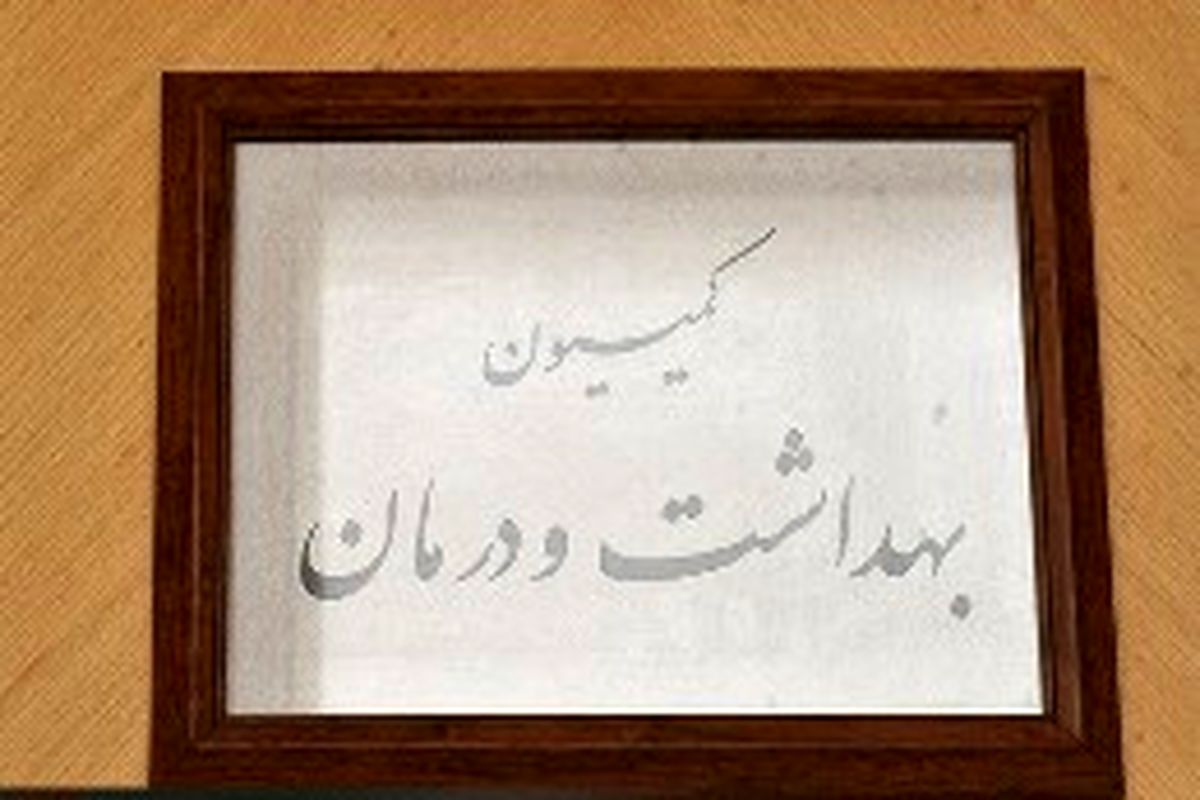 کمیسیون
بهداشت و درمان